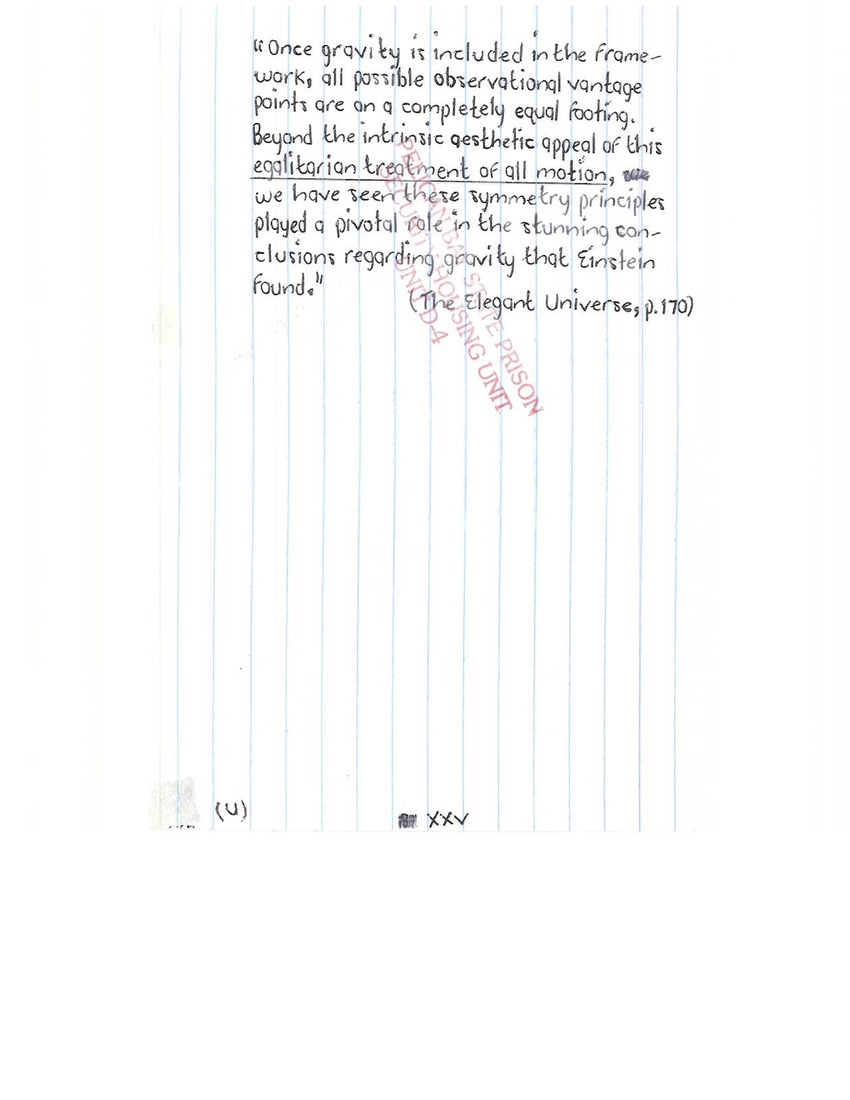 “Once gravity is included in the frame-
work, all possible observational vantage
points are on a completely equal footing.
Beyond the intrinsic aesthetic appeal of this
egalitarian treatment of all motion,
we have seen these symmetry principles
played a pivotal role in the stunning con-
clusions regarding gravity that Einstein
found."
(The Elegant Universe, p.170)
PELICAN BAY STATE PRISON
SECURITY HOUSING UNIT
UNIT D-4
(U)
XXV